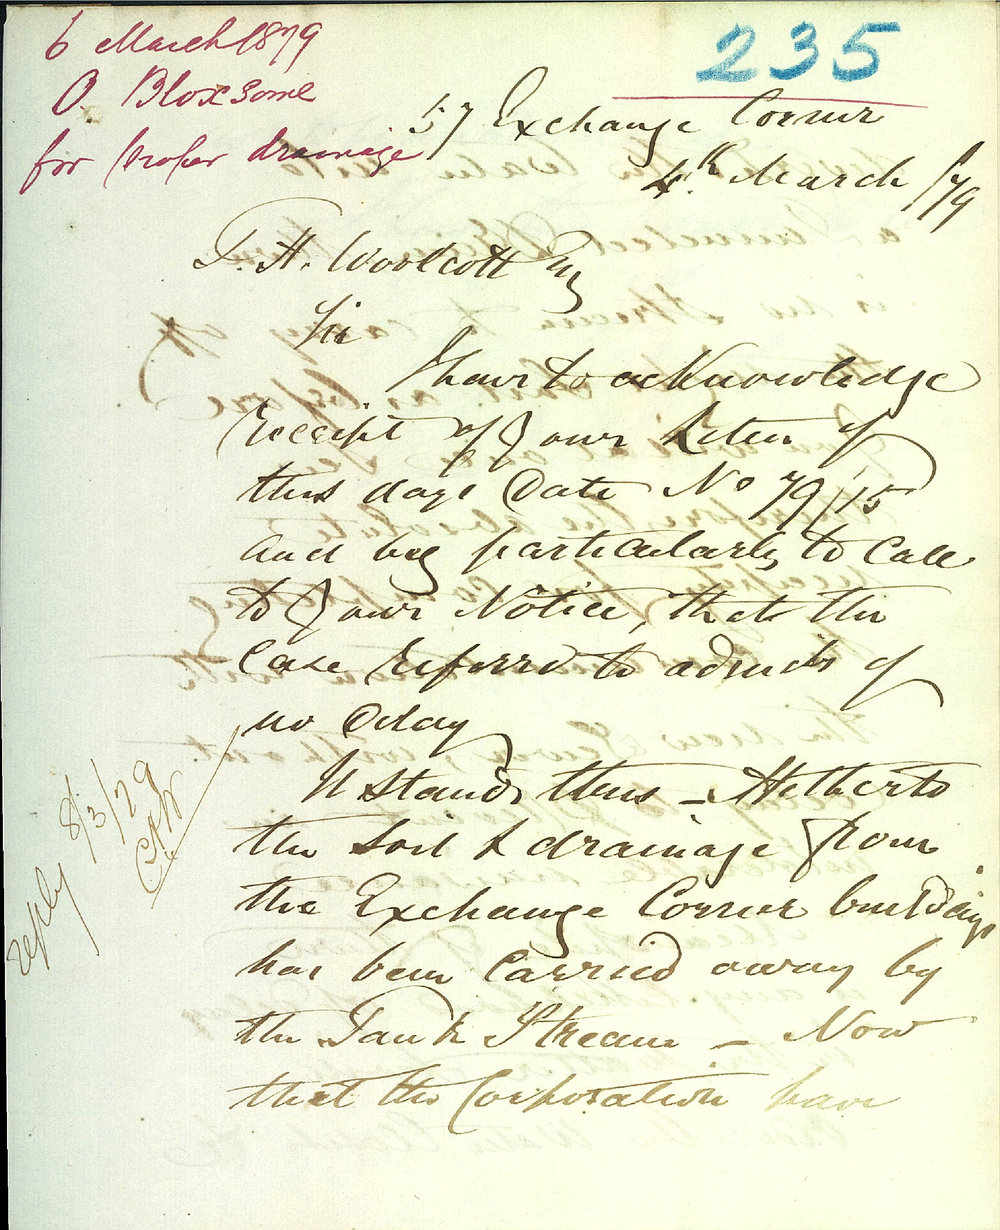 6 March 1879
O. Bloxsome
for proper drainage
235
57 Exchange Corner
4th March /79
J. H. Woolcott Esq
Sir
I have to acknowledge
receipt of your letter of
this days date No 79/15
and beg particularly to call
to your Notice, that the
case referred to admits of
no delay
It stands thus - Hetherto
the soil & drainage from
the Exchange Corner buildings
has been carried away by
the Tank Stream - Now
that the Corporation have
reply 8/3/79